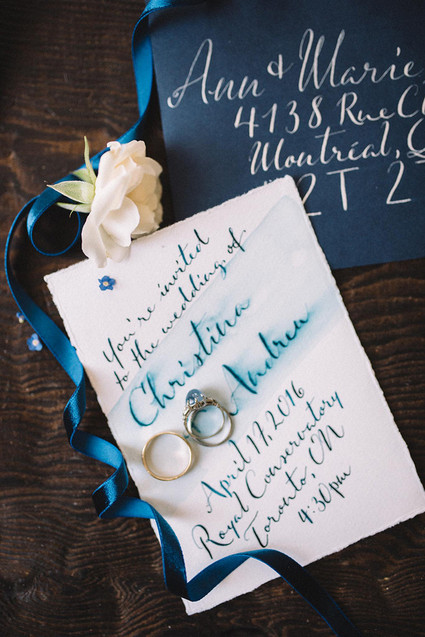 Ann & Marie
4138 Rue
Montréal, Q
2T 2
You're invited
to the wedding of
Christina
Andrew
April 17, 2016
Royal Conservatory
Toronto ON
4:30pm